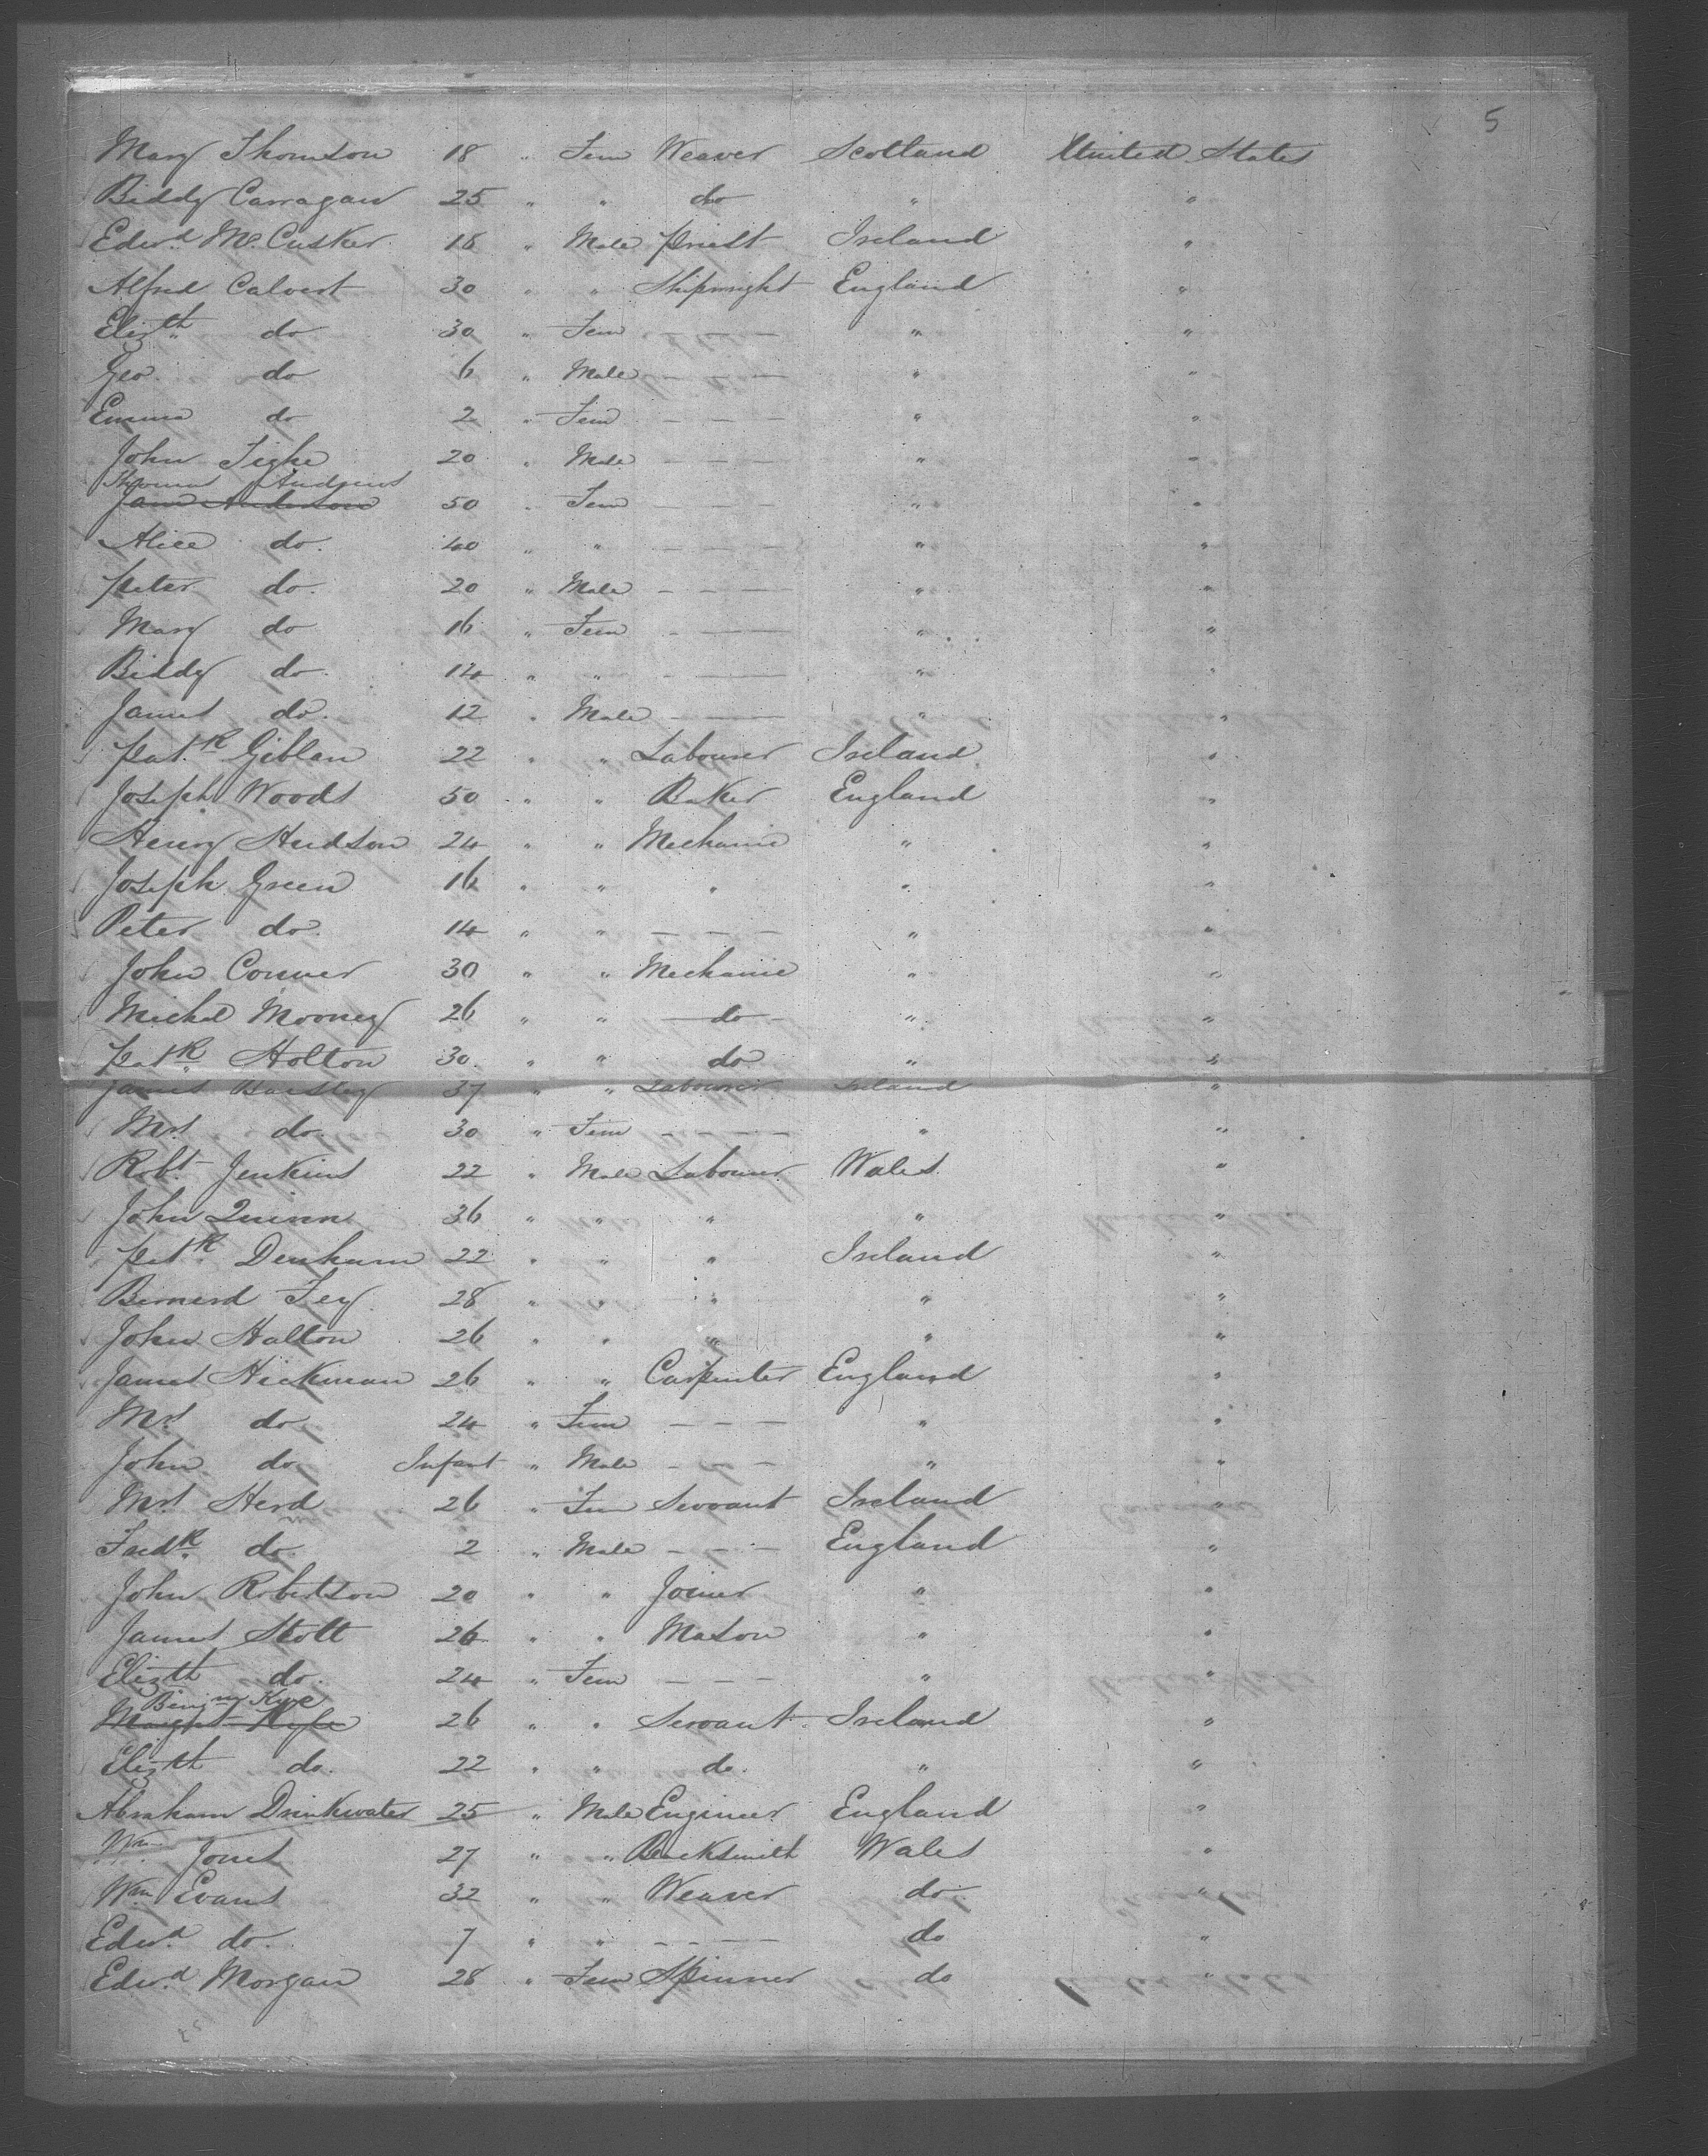 5
Mary Thomson 18 " Fem Weaver Scotland United States
Biddy Carragan 25 " " do " "
Edwd. McCusker 18 " Male Priest Ireland "
Alfred Calvert 30 " " Shipwright England "
Elizth do 30 " Fem - - - " "
Geo. do 6 " Male - - - " "
Emma do 2 " Fem - - - " "
John Tighe 20 " Male - - - " "
Thomas Andrews
Jane Anderson 50 " Fem - - - " "
Alice do. 40 " " - - - " "
Peter do. 20 " Male - - - " "
Mary do 16 " Fem - - - " "
Biddy do. 14 " " - - " "
James do. 12 " Male - - " "
Patk. Giblan 22 " " Labourer Ireland "
Joseph Woods 50 " " Baker England "
Henry Hudson 24 " " Mechanic " "
Joseph Green 16 " " " " "
Peter do. 14 " " - - - " "
John Conner 30 " " Mechanic " "
Michel Mooney 26 " " do " "
Patk. Holton 30. " " do " "
James 37 " " Labourer Ireland "
Mrs do. 30 " Fem - - - - " "
Robt. Jenkins 22 " Male Labourer Wales "
John Quinn 36 " " " " "
Patk. Denham 22 " " " Ireland "
Bernerd Fey 28 " " " " "
John Halton 26 " " " " "
James Hickman 26 " " Carpenter England "
Mrs do 24 " Fem - - - " "
John do Infant " Male - - - " "
Mrs Herd 26 " Fem Servant Ireland "
Fredk. do. 2 " Male - - - England "
John Robertson 20 " " Joiner " "
James Stott 26 " " Mason " "
Elizth do. 24 " Fem - - - " "
Kyle
Margt Kyle 26 " " Servant Ireland "
Elizth do. 22 " " do. " "
Abraham Drinkwater 25 " Male Engineer England "
Wm. Jones 27 " " Blacksmith Wales "
Wm. Evans 32 " " Weaver do. "
Edwd. do. 7 " " - - - - do "
Edwd. Morgan 28 " Fem Spinner do "